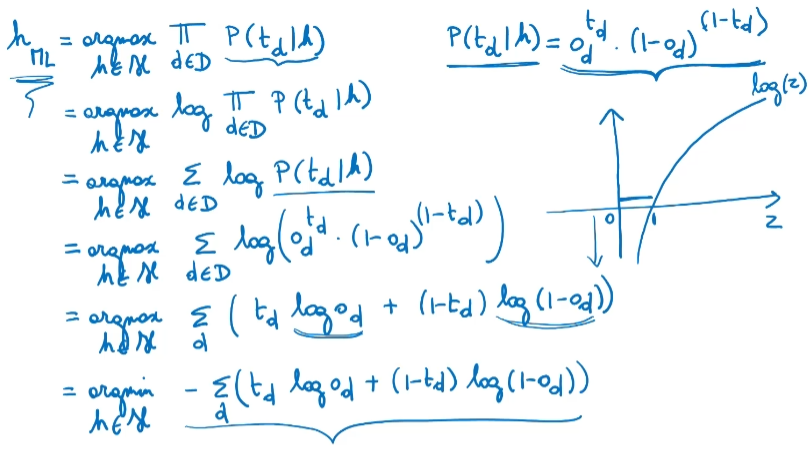 h_ML = argmax_{h∈H} ∏_{d∈D} P(t_d|h)
P(t_d|h) = o_d^{t_d} · (1-o_d)^{(1-t_d)}
= argmax_{h∈H} log ∏_{d∈D} P(t_d|h)
= argmax_{h∈H} Σ_{d∈D} log P(t_d|h)
= argmax_{h∈H} Σ_{d∈D} log(o_d^{t_d} · (1-o_d)^{(1-t_d)})
= argmax_{h∈H} Σ_d (t_d log o_d + (1-t_d) log(1-o_d))
= argmin_{h∈H} - Σ_d (t_d log o_d + (1-t_d) log(1-o_d))
log(z)
0 1
z